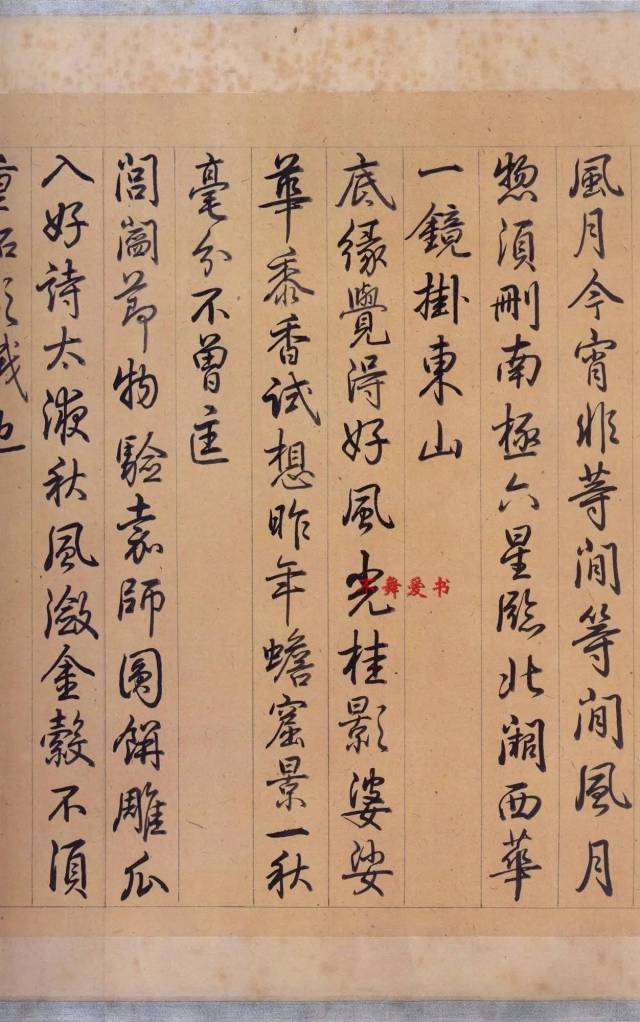 風月今宵非等閒等閒風月
惣須刪南極六星臨北闕西華
一鏡掛東山
底緣覺得好風光桂影婆娑
華黍香試想昨年蟾窟景一秋
毫分不曾匡
閭閻節物驗嘉師圓餅雕瓜
入好詩太液秋風瀲金縠不須
舞爱书